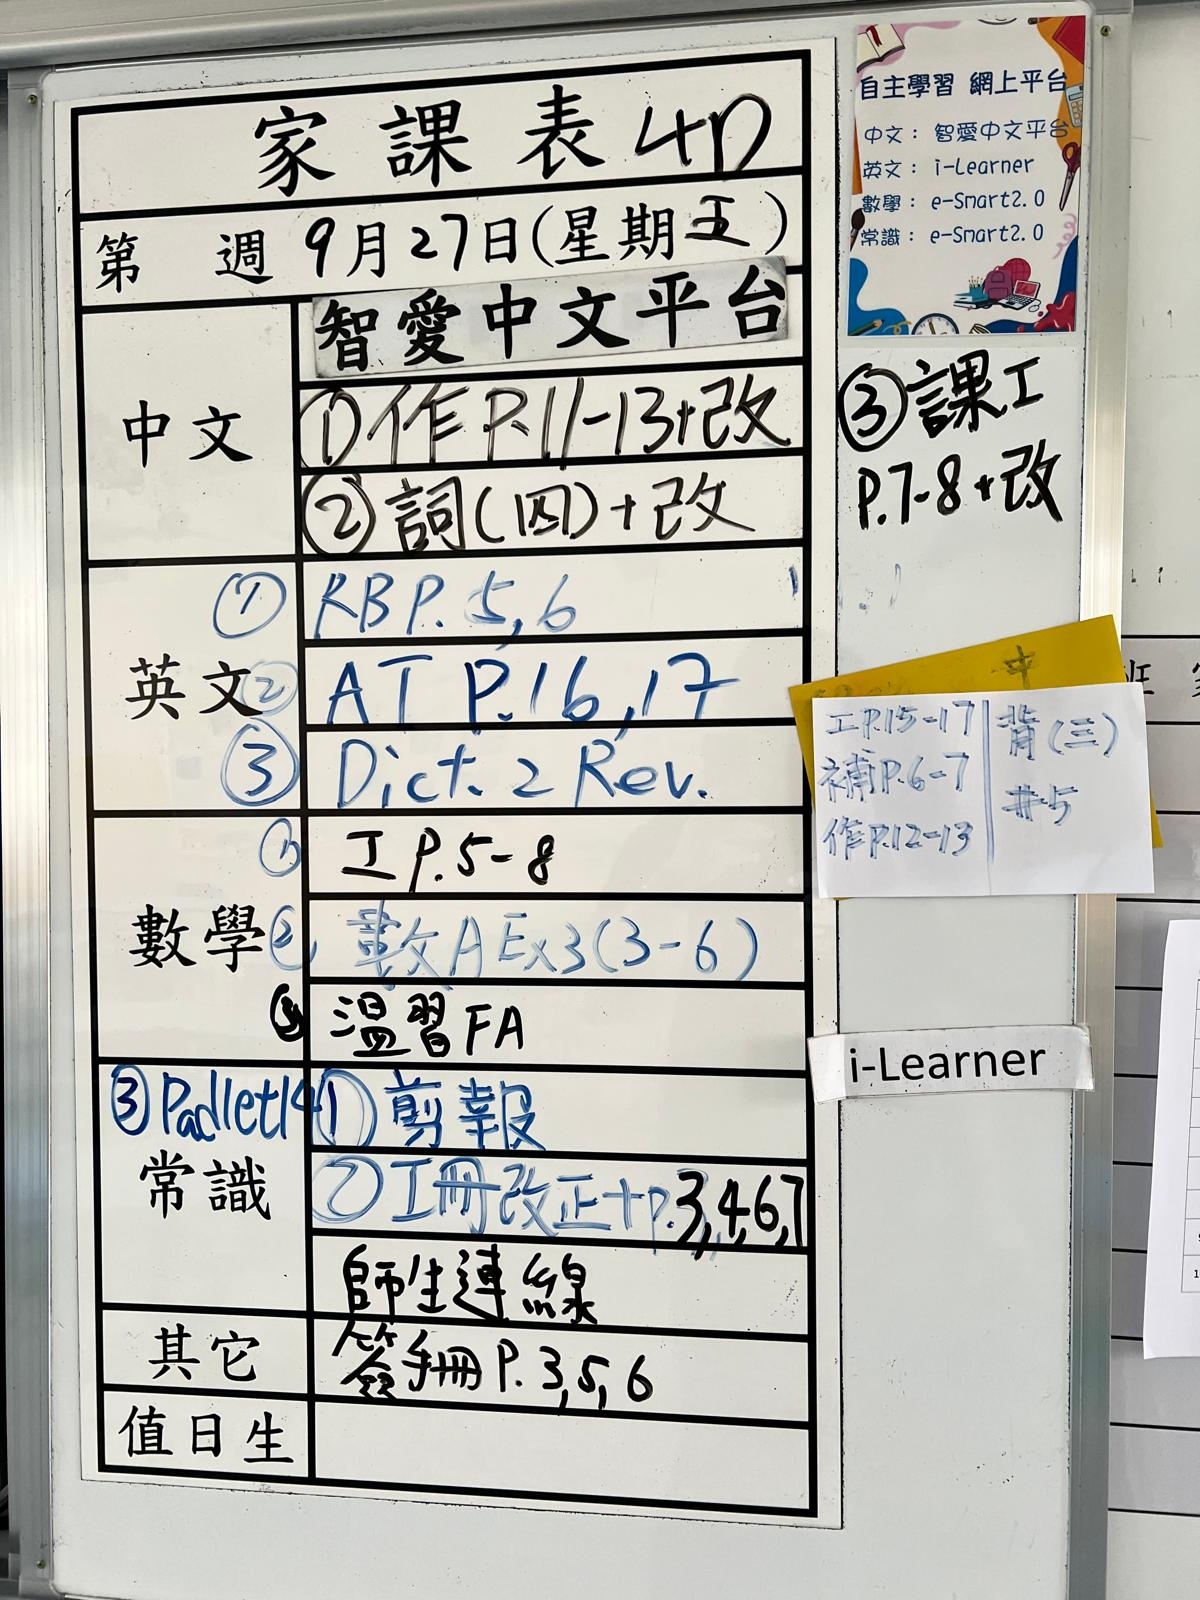 家課表 4D
第 週 9月27日(星期五)
中文
智愛中文平台
① 作 P.11-13+改
② 詞(四)+改
③ 課工
P.7-8+改
英文
① RB P. 5, 6
② AT P.16, 17
③ Dict. 2 Rev.
數學
① 工 P.5-8
② 數 A Ex3(3-6)
③ 溫習 FA
常識
① 剪報
② 工冊改正+P.3,4,6,7
③ Padlet 14
師生連線
其它
簽手冊 P. 3, 5, 6
值日生
自主學習 網上平台
中文：智愛中文平台
英文：i-Learner
數學：e-Smart2.0
常識：e-Smart2.0
中
工P.15-17
補P.6-7
作P.12-13
背(三)
#5
i-Learner